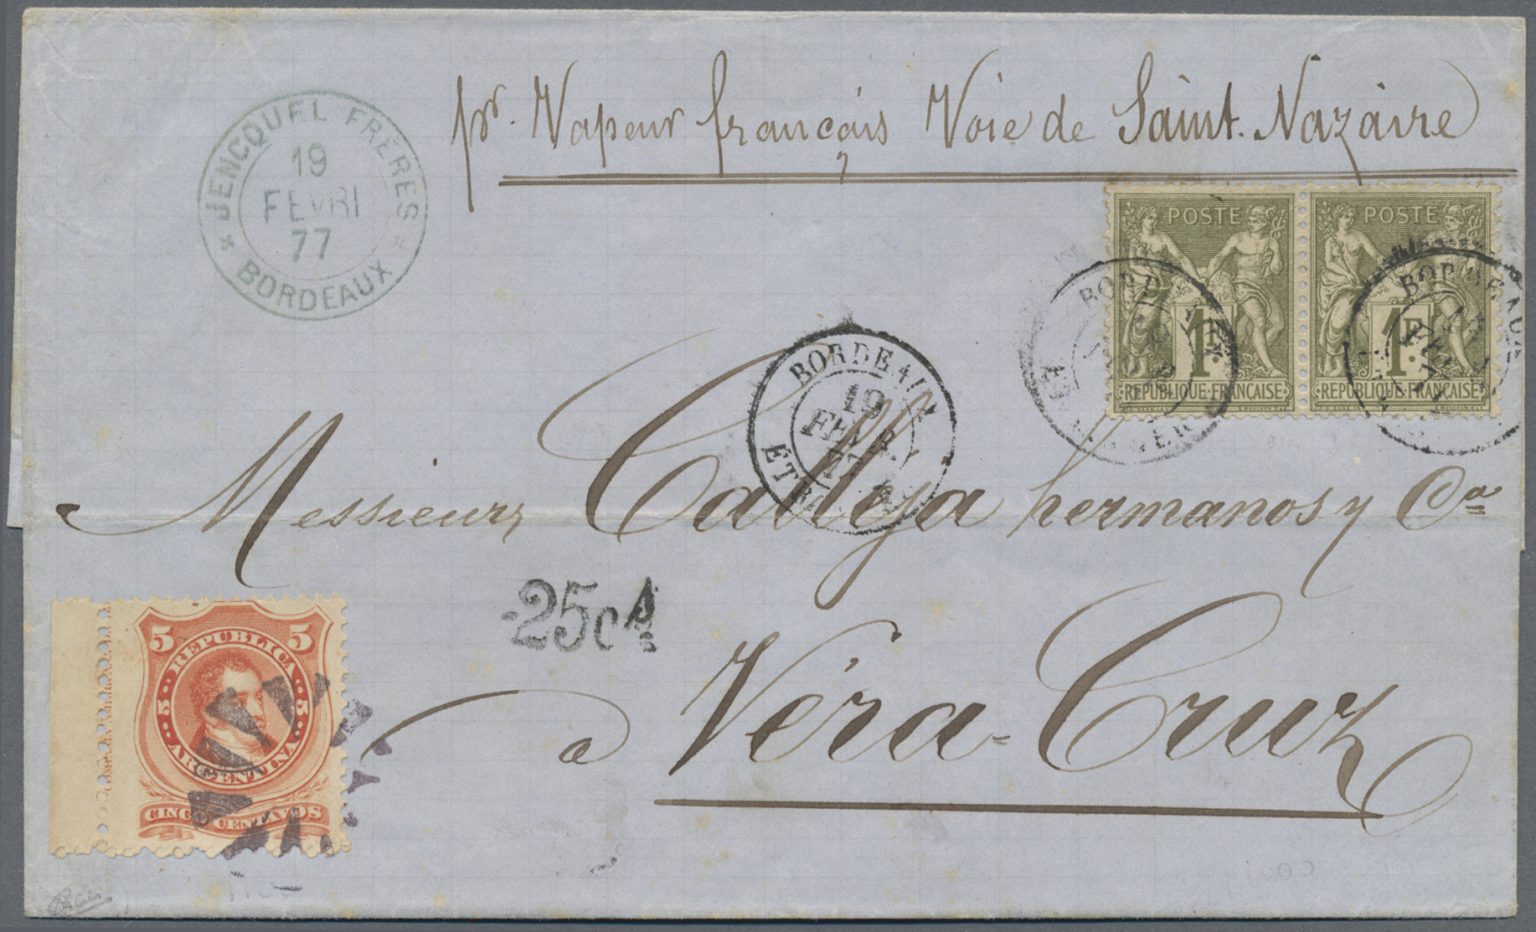 pr. Vapeur français Voie de Saint. Nazaire
JENCQUEL FRÈRES
19
FEVRI
77
BORDEAUX
POSTE
1F
REPUBLIQUE FRANÇAISE
POSTE
1F
REPUBLIQUE FRANÇAISE
BORDEAUX
BORDEAUX
BORDEAUX
19
FEVR.
77
Messieurs Calleja hermanos y Ca
25cs
a Véra-Cruz
5 5
REPUBLICA
5 5
ARGENTINA
CINCO CENTAVOS